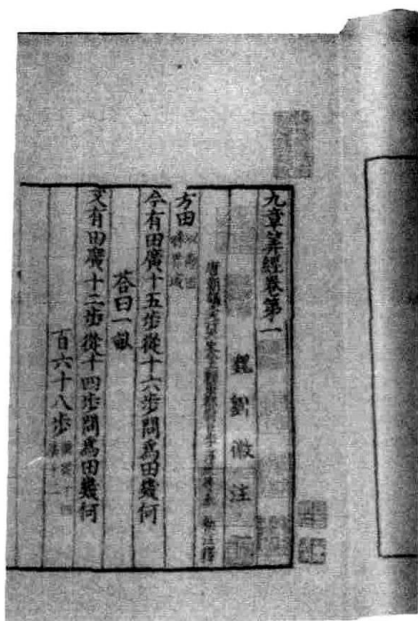 九章筭經卷第一
魏劉徽注
唐朝議大夫行太史令上輕車都尉臣李淳風等奉 勑注釋
方田以御田疇界域
今有田廣十五步從十六步問為田幾何
荅曰一畝
又有田廣十二步從十四步問為田幾何
百六十八步